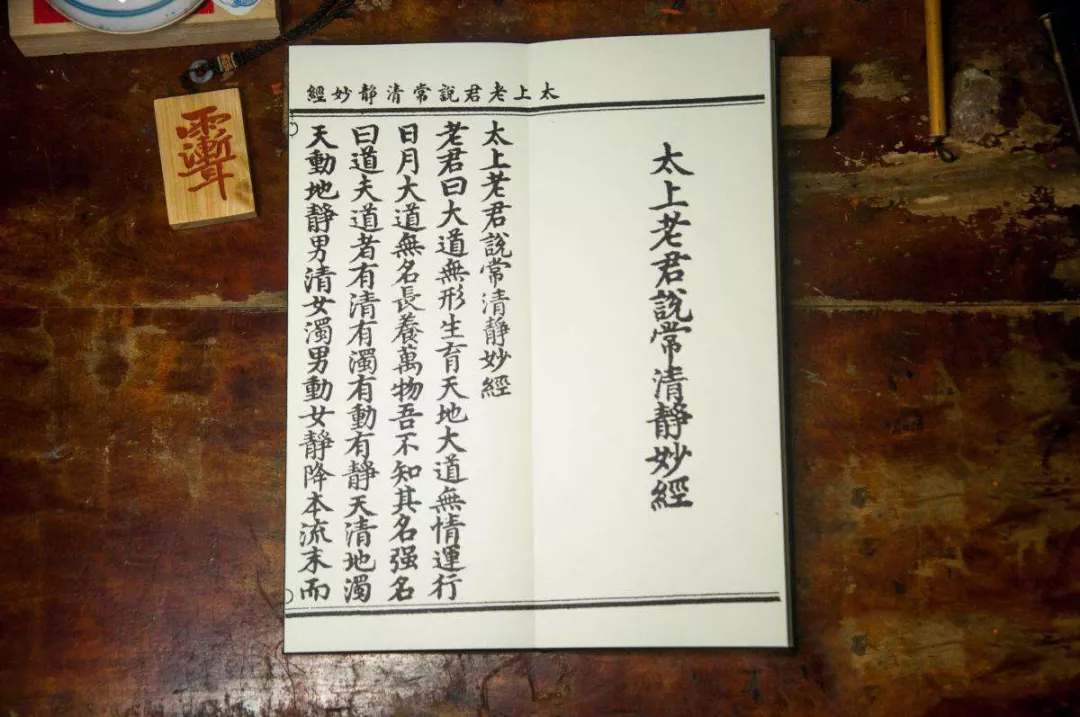 太上老君說常清靜妙經
太上老君說常清靜妙經
太上老君說常清靜妙經
老君曰大道無形生育天地大道無情運行
日月大道無名長養萬物吾不知其名强名
曰道夫道者有清有濁有動有靜天清地濁
天動地靜男清女濁男動女靜降本流末而